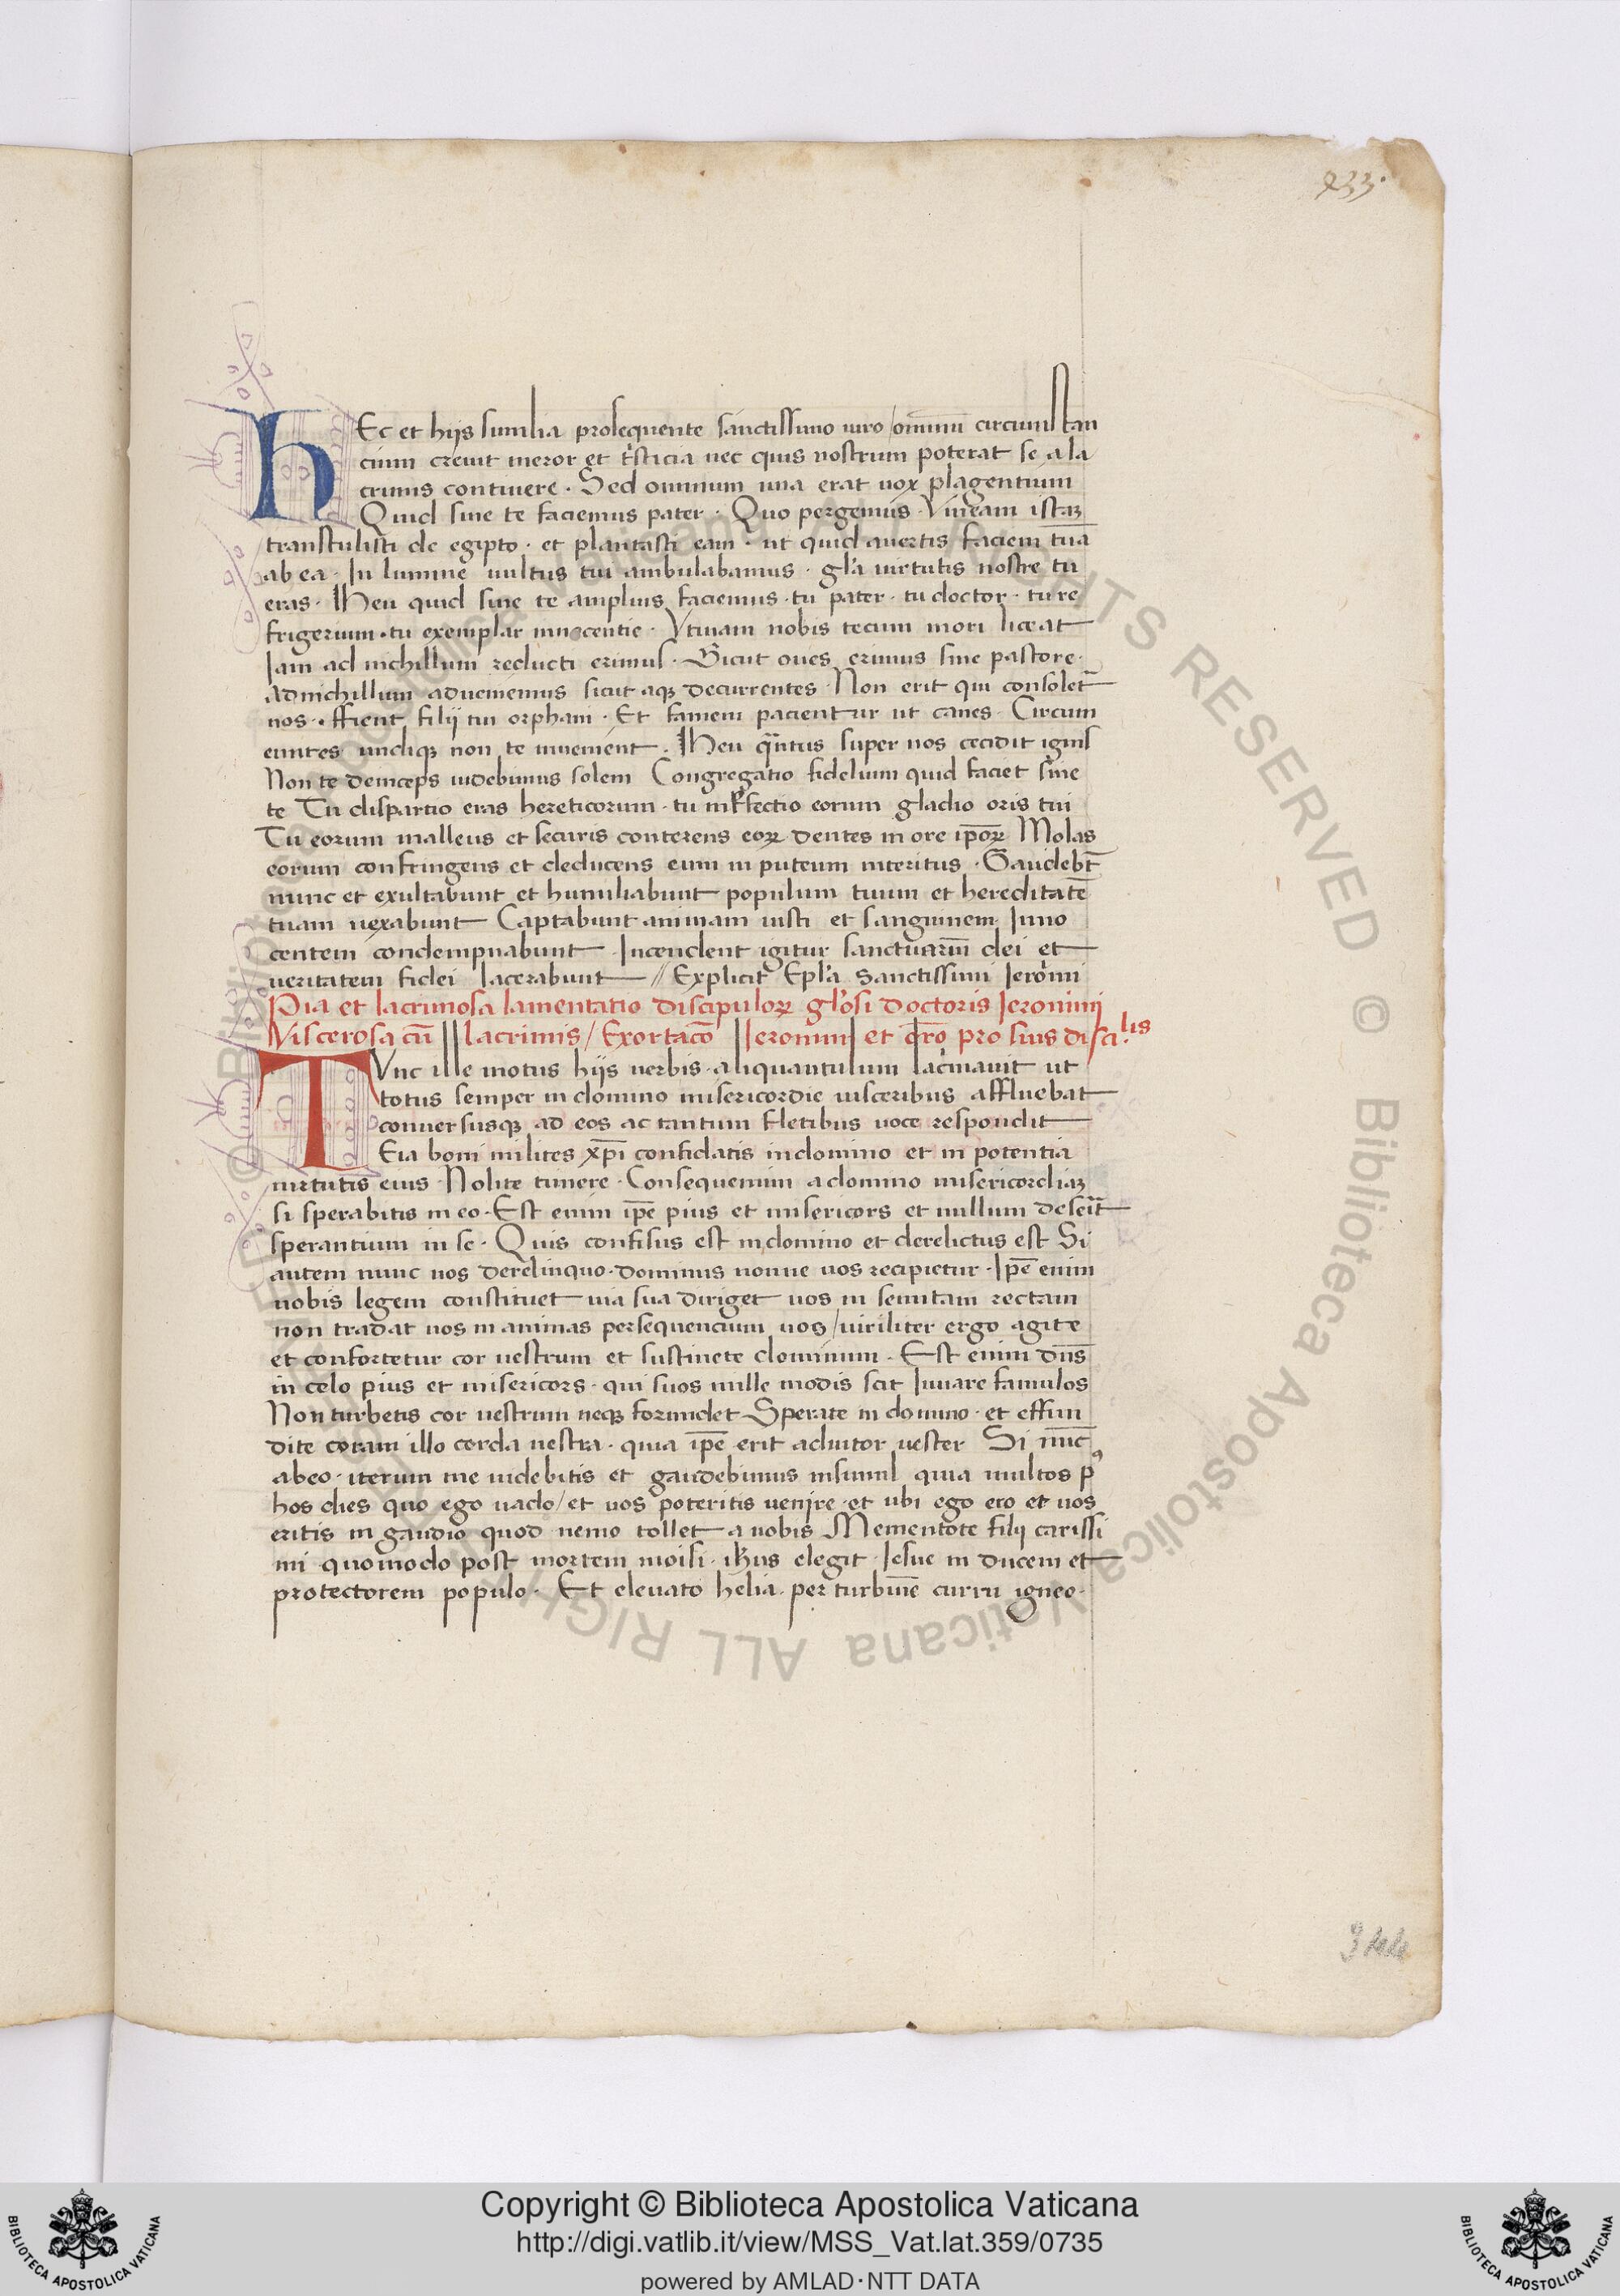 933.
HEc et hijs similia prosequente sanctissimo uiro / omniũ circumstan
cium creuit meror et tͥsticia nec quis nostrum poterat se a la
crimis continere · Sed omnium una erat uox plagentium
Quid sine te faciemus pater · Quo pergemus · Vineam istaꝫ
transtulisti de egipto · et plantasti eam · ut quid auertis faciem tuã
ab ea · In lumine uultus tui ambulabamus · gl'a uirtutis nostre tu
eras · Heu quid sine te amplius faciemus · tu pater · tu doctor · tu re
frigerium · tu exemplar innocentie · Vtinam nobis tecum mori liceat
Iam ad nichillum reducti erimus · Sicut oues erimus sine pastore ·
ad nichillum adueniemus sicut aqꝫ decurrentes · Non erit qui consolet᷑
nos · ffient filij tui orphani · Et famem pacientur ut canes · Circum
euntes undiqꝫ non te inuenient · Heu qᷓntus super nos cecidit ignis
Non te deinceps uidebimus solem Congregatio fidelium quid faciet sine
te Tu dispartio eras hereticorum · tu inꝑfectio eorum gladio oris tui
Tu eorum malleus et securis conterens eoꝝ dentes in ore ip̃oꝝ Molas
eorum confringens et deducens eum in puteum interitus · Gaudebt̃
nunc et exultabunt et humiliabunt populum tuum et hereditatẽ
tuam uexabunt Captabunt animam iusti et sanguinem Inno
centem condempnabunt · Incendent igitur sanctuariũ dei et
ueritatem fidei lacerabunt // Explicit Epl'a Sanctissimi Ieronimi
Pia et lacrimosa lamentatio discipuloꝝ gl'osi doctoris Ieronimi
Viscerosa cũ lacrimis / Exortac̃o Ieronimi et or̃o pro suis disci.lis
TVnc ille motus hijs uerbis · aliquantulum lac͛mauit ut
totus semper in domino misericordie uisceribus affluebat
conuersusqꝫ ad eos ac tantum fletibus uoce respondit
Eia boni milites xp̃i confidatis in domino et in potentia
uirtutis eius · Nolite timere · Consequemini a domino misericordiaꝫ
si sperabitis in eo · Est enim ip̃e pius et misericors et nullum deserit᷑
sperantium in se · Quis confisus est in domino et derelictus est Si
autem nunc uos derelinquo · dominus nonne uos recipietur · Ip̃e enim
uobis legem constituet uia sua diriget uos in semitam rectam
non tradat uos in animas persequencium uos / uiriliter ergo agite
et confortetur cor uestrum et sustinete dominum · Est enim dñs
in celo pius et misericors · qui suos mille modis scit Iuuare famulos
Non turbetis cor uestrum neqꝫ formidet Sperate in domino · et effun
dite coram illo corda uestra · quia ip̃e erit adiutor uester Si nũc
abeo · iterum me uidebitis et gaudebimus insimul quia multos pꝰ
hos dies quo ego uado / et uos poteritis uenire · et ubi ego ero et uos
eritis in gaudio quod nemo tollet a uobis Mementote filij carissi
mi quomodo post mortem moisi · ih̃us elegit · Iesue in ducem et
protectorem populo · Et eleuato helia · per turbinẽ curru igneo ·
944
Copyright © Biblioteca Apostolica Vaticana
http://digi.vatlib.it/view/MSS_Vat.lat.359/0735
powered by AMLAD·NTT DATA
BIBLIOTECA APOSTOLICA VATICANA
BIBLIOTECA APOSTOLICA VATICANA
© Biblioteca Apostolica Vaticana ALL RIGHTS RESERVED © Biblioteca Apostolica Vaticana ALL RIGHTS RESERVED